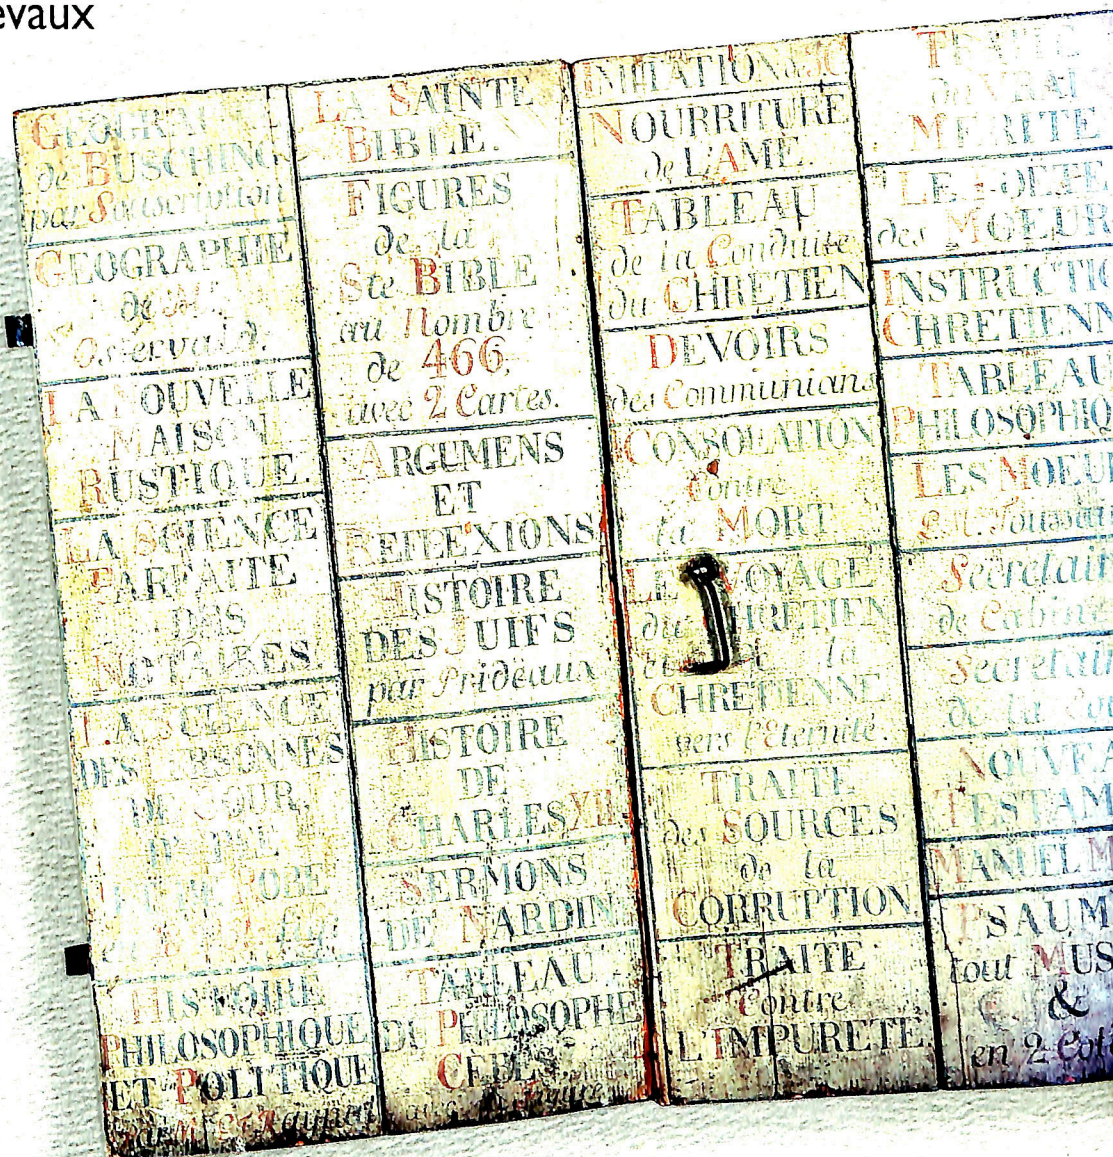 evaux
GEOGRA
de BUSCHING
par Souscription
GEOGRAPHIE
de Mr.
Ostervald.
LA NOUVELLE
MAISON
RUSTIQUE.
LA SCIENCE
PARFAITE
DES
NOTAIRES.
LA SCIENCE
DES PERSONNES
DE COUR,
D'EPEE
ROBE
HISTOIRE
PHILOSOPHIQUE
ET POLITIQUE
LA SAINTE
BIBLE.
FIGURES
de la
Ste BIBLE
au Nombre
de 466,
avec 2 Cartes.
ARGUMENS
ET
REFLEXIONS
HISTOIRE
DES JUIFS
par Prideaux
HISTOIRE
DE
CHARLES XII.
SERMONS
DE NARDIN
TABLEAU
DU PHILOSOPHE
CEBES,
IMITATION de JC
NOURRITURE
de L'AME.
TABLEAU
de la Conduite
du CHRETIEN
DEVOIRS
des Communians
CONSOLATION
Contre
la MORT
LE VOYAGE
du CHRETIEN
la
CHRETIENNE
vers l'Eternité.
TRAITE
des SOURCES
de la
CORRUPTION
TRAITE
Contre
L'IMPURETE
TRAITE
du VRAI
MERITE
LE POETE
des MOEUR
INSTRUCTIO
CHRETIENN
TABLEAU
PHILOSOPHIQ
LES MOEUR
P. Mr. Toussain
Secretair
de Cabine
Secretair
de la Cou
NOUVEA
TESTAM
MANUEL M
PSAUM
tout MUS
&
en 2 Col